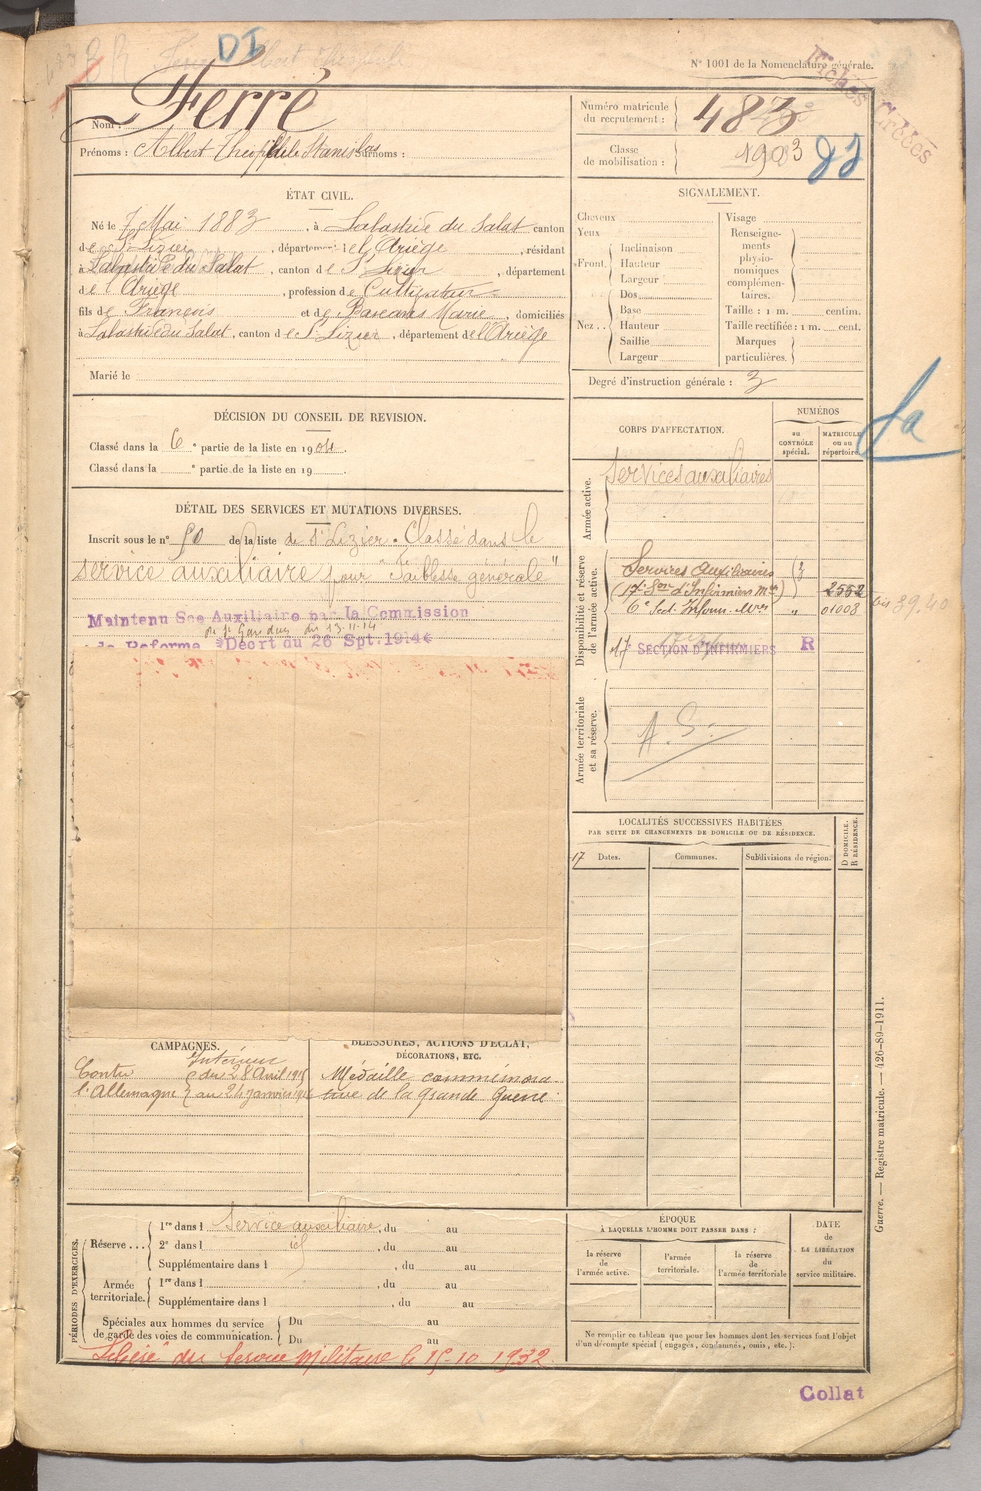 DI
N° 1001 de la Nomenclature générale.
Fiches Créées
Nom : Ferré
Prénoms : Albert Théophile Stanislas Surnoms :
Numéro matricule du recrutement : 483
Classe de mobilisation : 1903
ÉTAT CIVIL.
Né le 7 Mai 1883, à Labastide du Salat canton
de St Lizier, département de l'Ariège, résidant
à Labastide du Salat, canton de St Lizier, département
de l'Ariège, profession de Cultivateur
fils de François et de Marie, domiciliés
à Labastide du Salat, canton de St Lizier, département de l'Ariège
Marié le
SIGNALEMENT.
Cheveux
Yeux
Front.
Inclinaison
Hauteur
Largeur
Nez..
Dos
Base
Hauteur
Saillie
Largeur
Visage
Renseignements physionomiques complémentaires.
Taille : 1 m. centim.
Taille rectifiée : 1 m. cent.
Marques particulières.
Degré d'instruction générale : 3
DÉCISION DU CONSEIL DE REVISION.
Classé dans la 6e partie de la liste en 1904.
Classé dans la e partie de la liste en 19
DÉTAIL DES SERVICES ET MUTATIONS DIVERSES.
Inscrit sous le n° 50 de la liste de St Lizier. Classé dans le
service auxiliaire pour "faiblesse générale"
Maintenu Sce Auxiliaire par la Commission
de St Gaudens du 13.11.14
de Réforme Décrt du 26 Spt. 1914
CORPS D'AFFECTATION.
NUMÉROS
au CONTRÔLE spécial.
MATRICULE ou au répertoire.
Armée active.
Services auxiliaires
Disponibilité et réserve de l'armée active.
Services Auxiliaires
(17e Son d'Infirmiers Mres) 2552
6e Sect. Infirm. Mres " 01008
17e SECTION D'INFIRMIERS R
Armée territoriale et sa réserve.
A. S.
LOCALITÉS SUCCESSIVES HABITÉES
PAR SUITE DE CHANGEMENTS DE DOMICILE OU DE RÉSIDENCE.
17 Dates.
Communes.
Subdivisions de région.
D DOMICILE.
R RÉSIDENCE.
CAMPAGNES.
Intérieur
Contre du 28 Avril 1915
l'Allemagne au 24 Janvier
BLESSURES, ACTIONS D'ÉCLAT,
DÉCORATIONS, ETC.
Médaille commémora-
tive de la Grande Guerre
PÉRIODES D'EXERCICES.
Réserve...
1re dans l Service auxiliaire, du au
2e dans l id, du au
Supplémentaire dans l , du au
Armée territoriale.
1re dans l , du au
Supplémentaire dans l , du au
Spéciales aux hommes du service
de garde des voies de communication.
Du au
Du au
Libéré du Service Militaire le 15-10 1932
ÉPOQUE
À LAQUELLE L'HOMME DOIT PASSER DANS :
la réserve de l'armée active.
l'armée territoriale.
la réserve de l'armée territoriale
DATE de LA LIBÉRATION du service militaire.
Ne remplir ce tableau que pour les hommes dont les services font l'objet
d'un décompte spécial (engagés, condamnés, omis, etc.).
Guerre. — Registre matricule. — 426-89-1911.
Collat